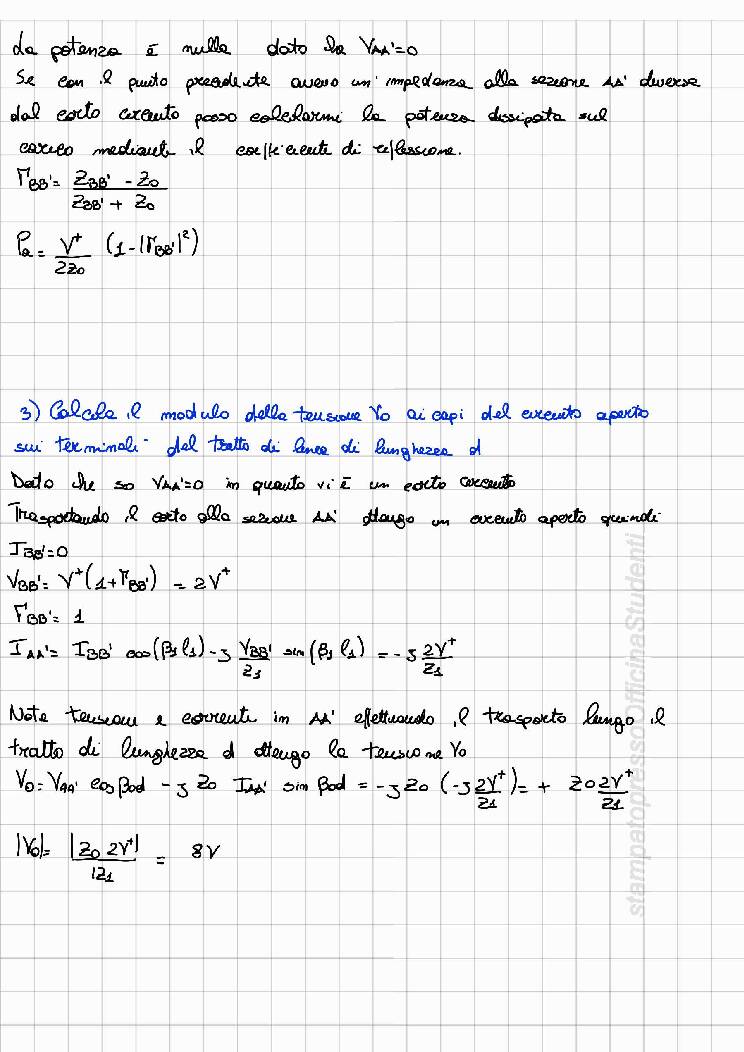 La potenza è nulla dato che VAA'=0
Se con il punto precedente avevo un' impedenza alla sezione AA' diversa
dal corto circuito posso calcolarmi la potenza dissipata sul
carico mediante il coefficiente di riflessione.
ΓBB'= ZBB' - Z0 / ZBB' + Z0
Pa = V⁺ / 2Z0 (1-|ΓBB'|²)
3) Calcola il modulo della tensione V0 ai capi del circuito aperto
sui terminali del tratto di linea di lunghezza d
Dato che so VAA'=0 in quanto vi è un corto circuito
Trasportando il corto alla sezione AA' ottengo un circuito aperto quindi
IBB'=0
VBB'= V⁺(1+ΓBB') = 2V⁺
ΓBB'= 1
IAA'= IBB' cos(β1 l1) - j VBB' / Z1 sin(β1 l1) = - j 2V⁺ / Z1
Note tensioni e corrente in AA' effettuando il trasporto lungo il
tratto di lunghezza d ottengo la tensione V0
V0= VAA' cos β0d - j Z0 IAA' sin β0d = - j Z0 (-j 2V⁺ / Z1) = + Z0 2V⁺ / Z1
|V0|= |Z0 2V⁺| / |Z1 = 8V
stampatopressoOfficinaStudenti